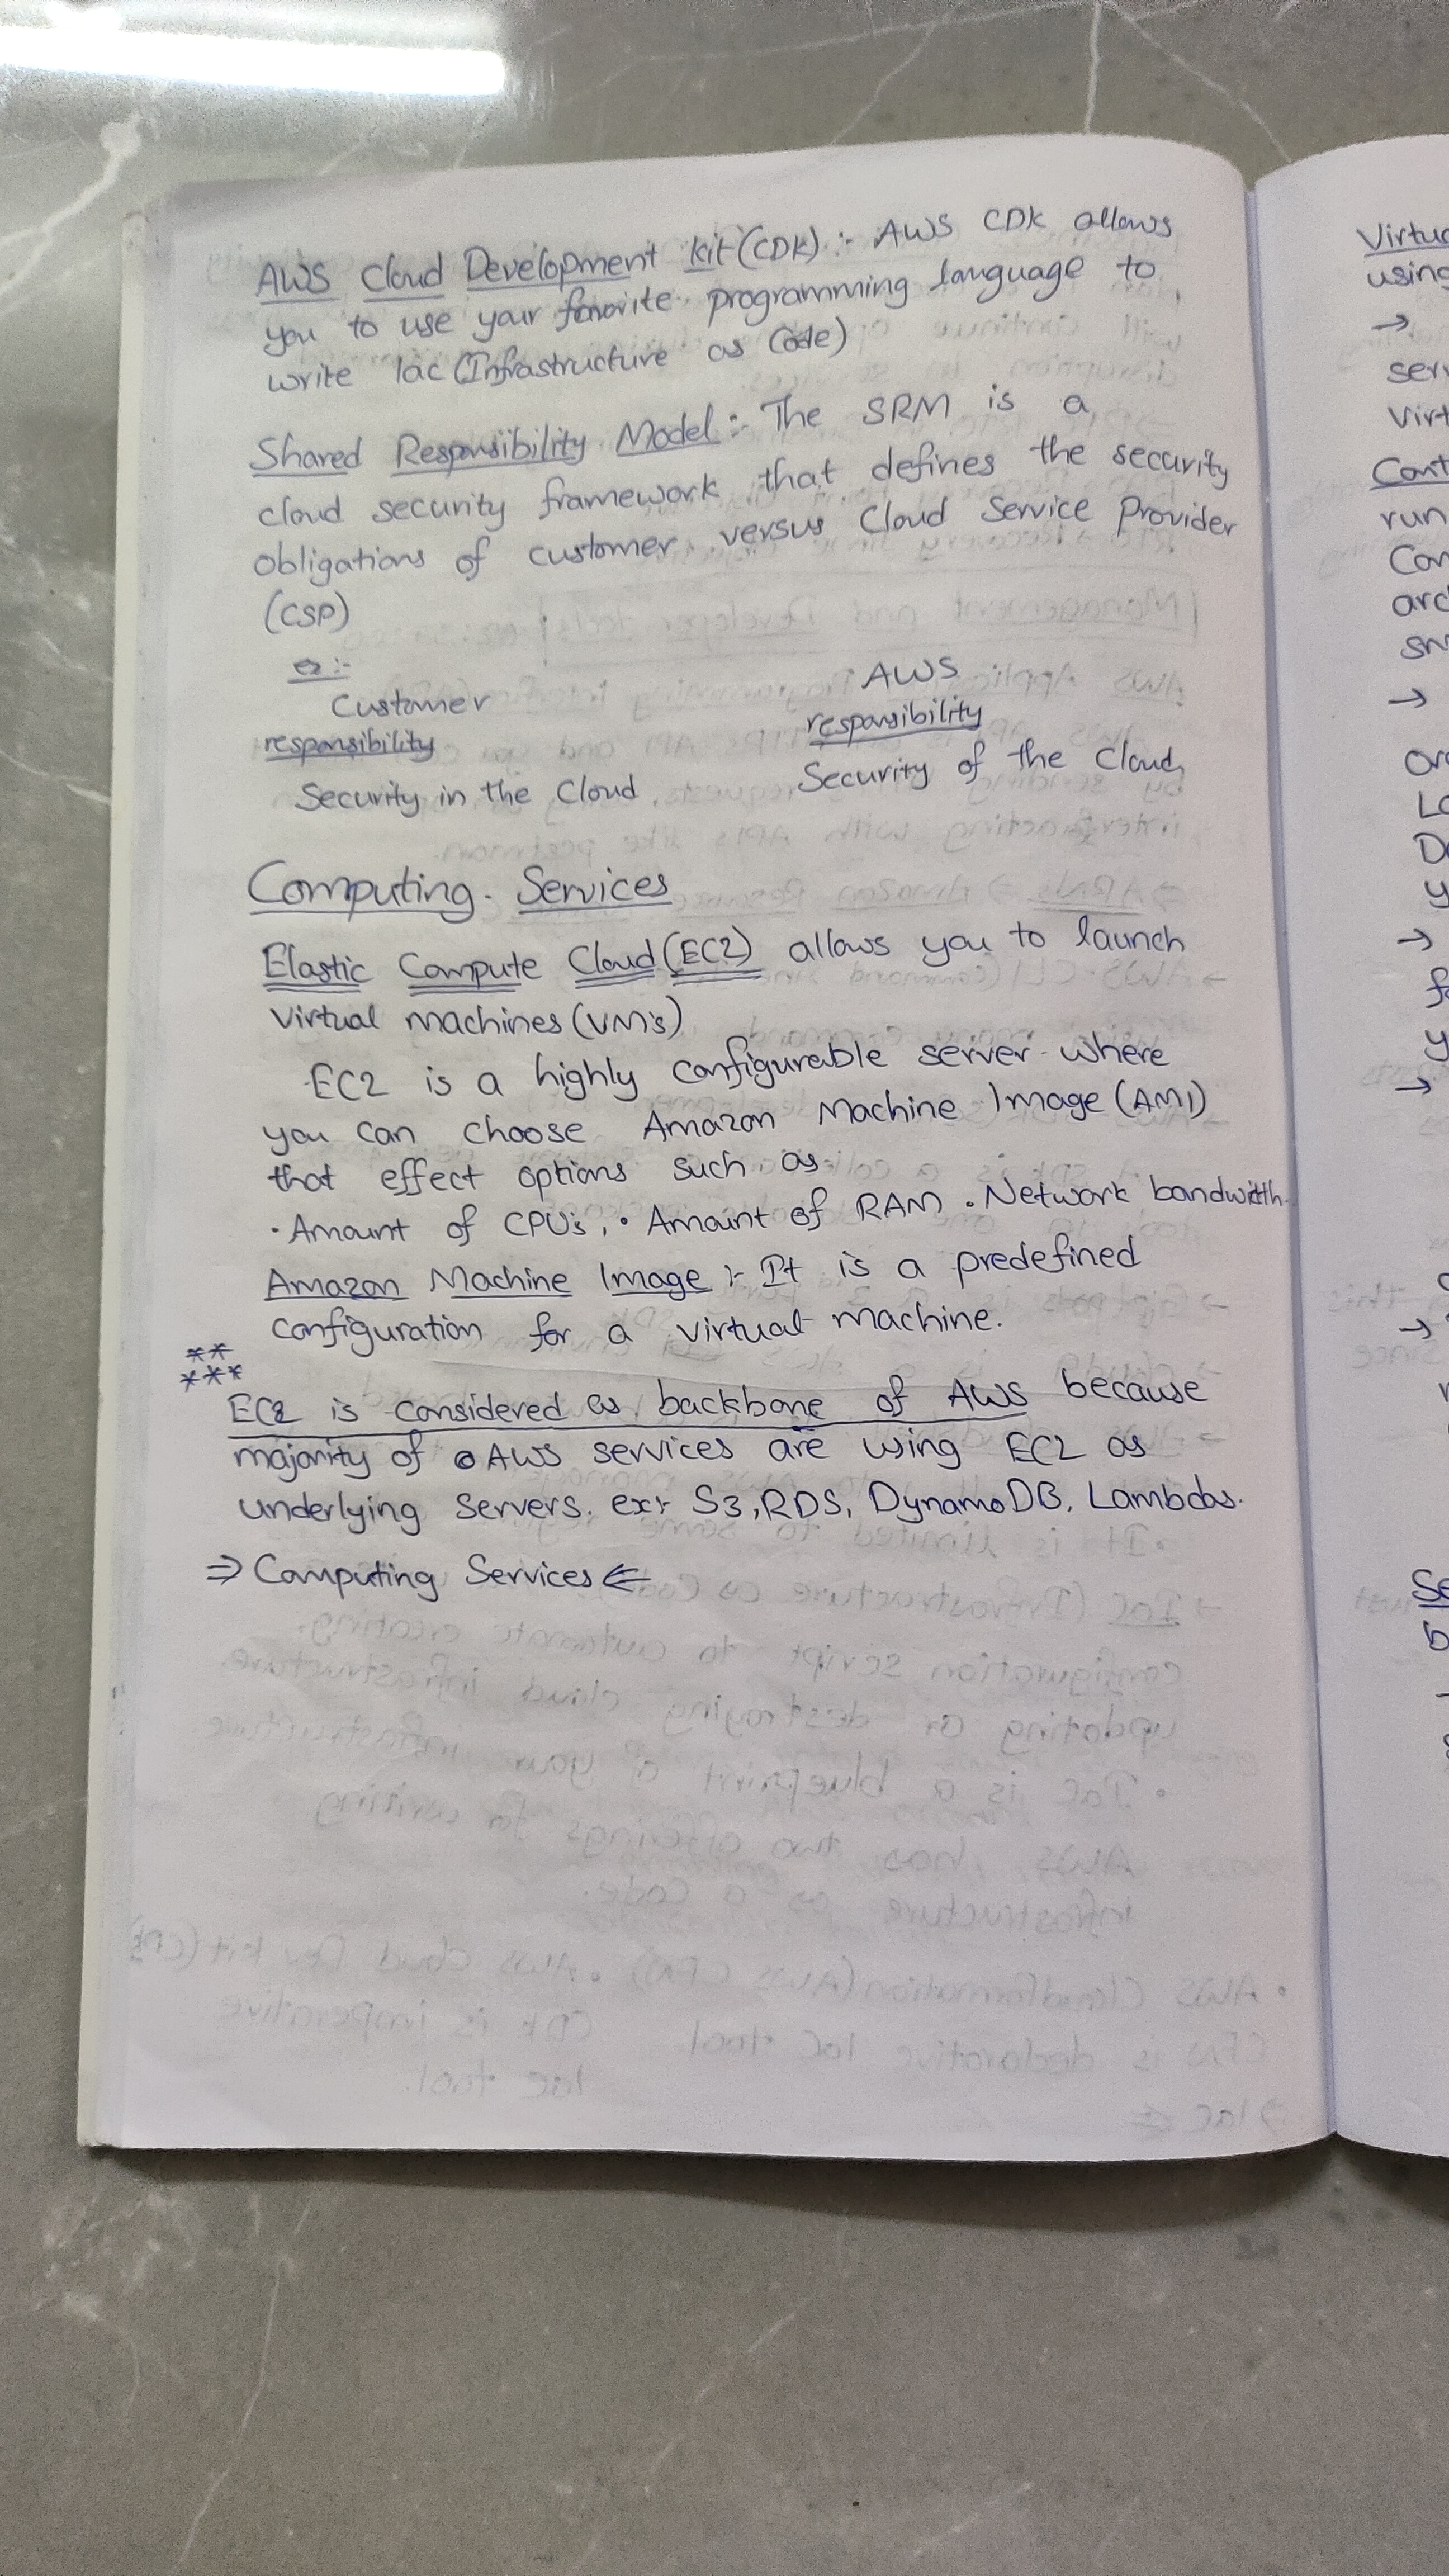 AWS Cloud Development Kit (CDK) :- AWS CDK allows
you to use your favorite programming language to
write Iac (Infrastructure as Code)
Shared Responsibility Model :- The SRM is a
cloud security framework that defines the security
obligations of customer versus Cloud Service Provider
(CSP)
ex :-
Customer
responsibility
Security in the Cloud
AWS
responsibility
Security of the Cloud
Computing Services
Elastic Compute Cloud (EC2) allows you to launch
Virtual Machines (VM's)
EC2 is a highly configurable server where
you can choose Amazon Machine Image (AMI)
that effect options such as
• Amount of CPU's, • Amount of RAM • Network bandwidth
Amazon Machine Image :- It is a predefined
configuration for a virtual machine.
**
***
EC2 is considered as backbone of AWS because
majority of AWS services are using EC2 as
underlying Servers. ex:- S3, RDS, DynamoDB, Lambdas.
⇒ Computing Services ⇐
using
→
→
→
→
→
run